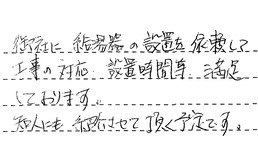 御社に給湯器の設置を依頼して
工事の対応、設置時間等、満足
しております。
知人にも紹介させて頂く予定です。